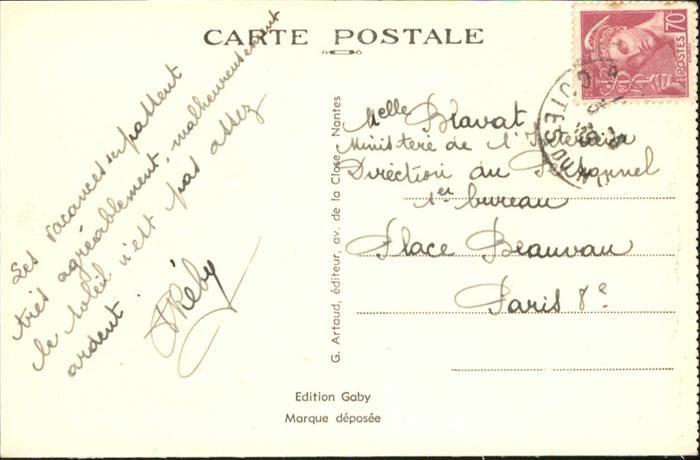 CARTE POSTALE
70c
POSTES
Les vacances se passent
très agréablement, malheureusement
le soleil n'est pas assez
ardent.
Melle Blavat
Ministère de l'Intérieur
Direction du Personnel
1er bureau
Place Beauvau
Paris 8e
G. Artaud, éditeur, av. de la Close, Nantes
Edition Gaby
Marque déposée